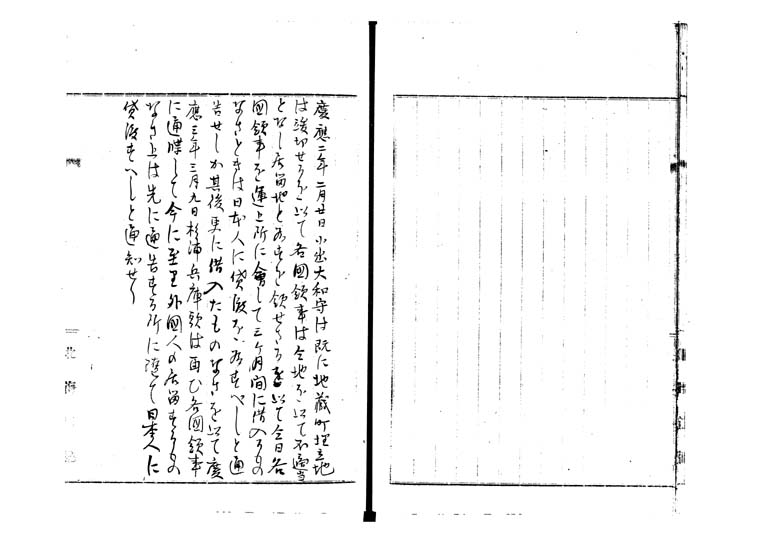 慶應二年二月廿日小出大和守は既に地蔵町埋立地
は竣功せるを以て各國領事は仝地を以て不適当
となし居留地と為すを領せざるを以て仝日各
國領事を運上所に會して三ヶ月間に借入るもの
なきときは日本人に貸渡を為すべしと通
告せしが其後更に借入たものなきを以て慶
應三年三月九日杉浦兵庫頭は再び各國領事
に通牒して今に至り外國人の居留するもの
なき上は先に通告する所に随て日本人に
貸渡すべしと通知せり
北海